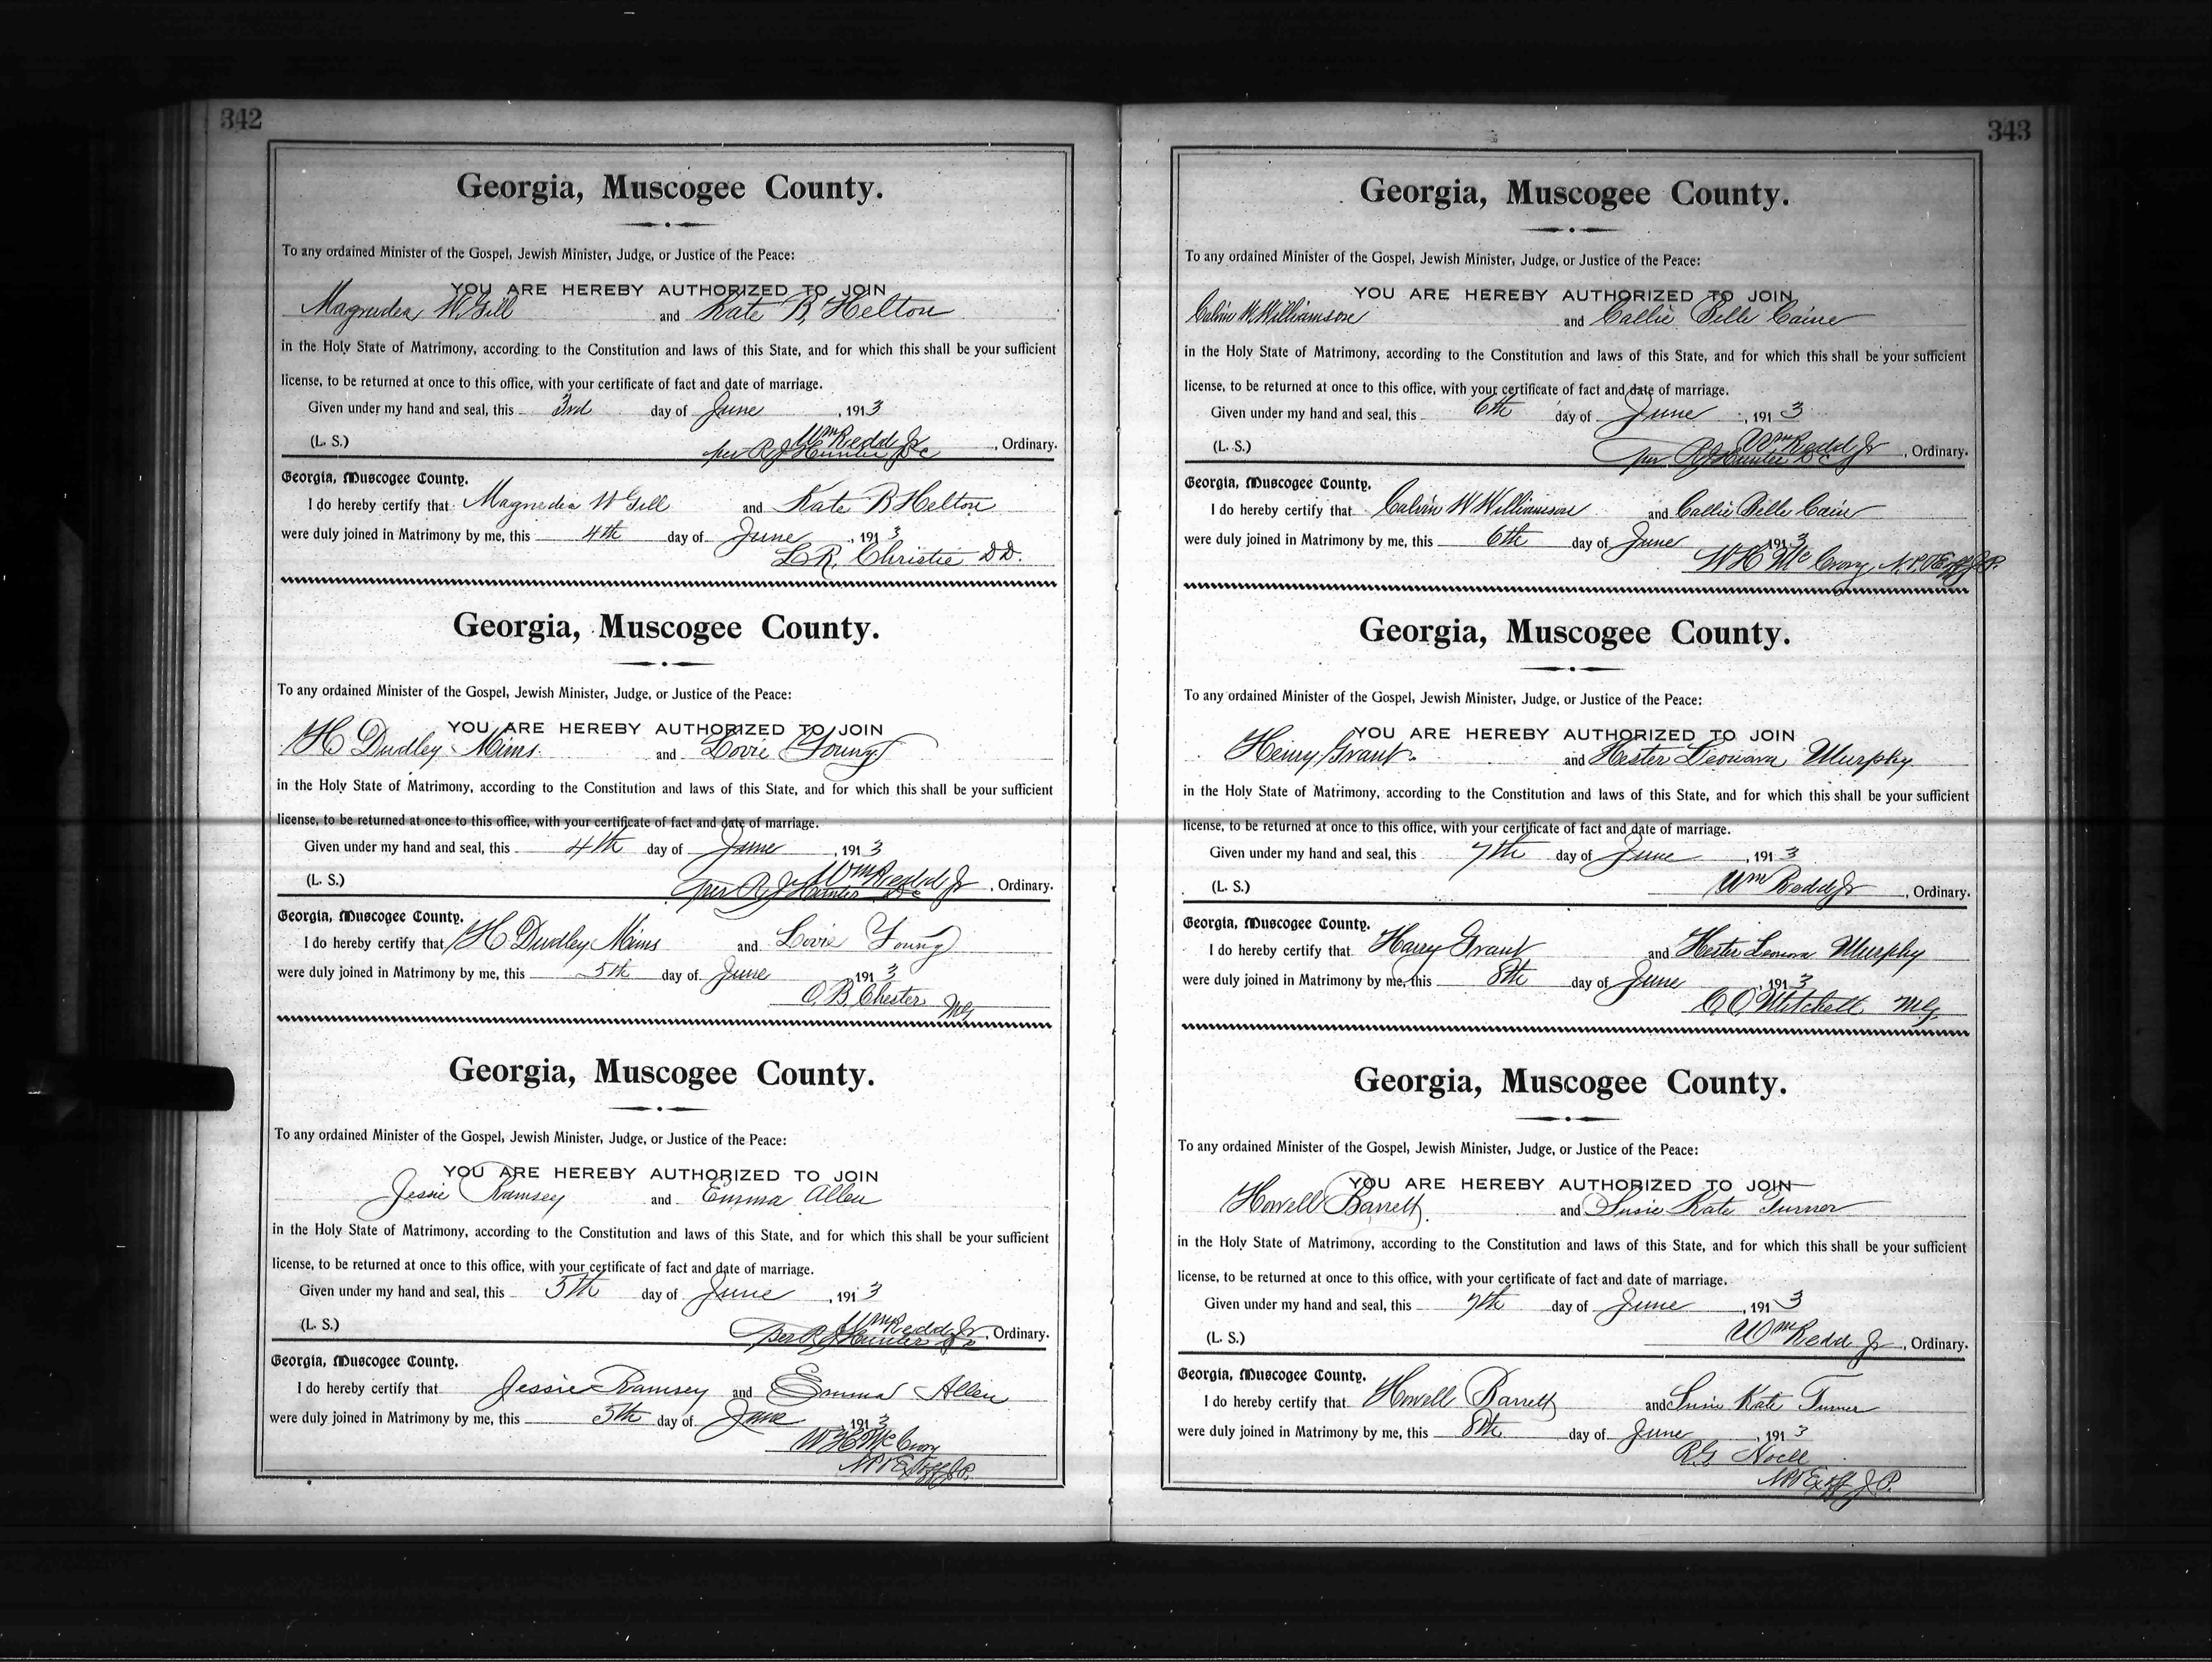 342
Georgia, Muscogee County.
To any ordained Minister of the Gospel, Jewish Minister, Judge, or Justice of the Peace:
YOU ARE HEREBY AUTHORIZED TO JOIN
Magruder W Gill and Kate B, Helton
in the Holy State of Matrimony, according to the Constitution and laws of this State, and for which this shall be your sufficient
license, to be returned at once to this office, with your certificate of fact and date of marriage.
Given under my hand and seal, this 3rd day of June, 1913
(L. S.) Wm Redd Jr, Ordinary.
per R J Hunter DC
Georgia, Muscogee County.
I do hereby certify that W Gill and Kate B Helton
were duly joined in Matrimony by me, this 4th day of June, 1913
L.R. Christie DD.
Georgia, Muscogee County.
To any ordained Minister of the Gospel, Jewish Minister, Judge, or Justice of the Peace:
YOU ARE HEREBY AUTHORIZED TO JOIN
H Dudley Mims and Lovie Young
in the Holy State of Matrimony, according to the Constitution and laws of this State, and for which this shall be your sufficient
license, to be returned at once to this office, with your certificate of fact and date of marriage.
Given under my hand and seal, this 4th day of June, 1913
(L. S.) Wm Redd Jr, Ordinary.
per R J Hunter DC
Georgia, Muscogee County.
I do hereby certify that H Dudley Mims and Lovie Young
were duly joined in Matrimony by me, this 5th day of June, 1913
O B Chester MG
Georgia, Muscogee County.
To any ordained Minister of the Gospel, Jewish Minister, Judge, or Justice of the Peace:
YOU ARE HEREBY AUTHORIZED TO JOIN
Jessie Ramsey and Emma Allen
in the Holy State of Matrimony, according to the Constitution and laws of this State, and for which this shall be your sufficient
license, to be returned at once to this office, with your certificate of fact and date of marriage.
Given under my hand and seal, this 5th day of June, 1913
(L. S.) Wm Redd Jr, Ordinary.
per R J Hunter DC
Georgia, Muscogee County.
I do hereby certify that Jessie Ramsey and Emma Allen
were duly joined in Matrimony by me, this 5th day of June, 1913
W H McCrory
NP & Ex Off J.P.
343
Georgia, Muscogee County.
To any ordained Minister of the Gospel, Jewish Minister, Judge, or Justice of the Peace:
YOU ARE HEREBY AUTHORIZED TO JOIN
Calvin W Williamson and Callie Belle Caine
in the Holy State of Matrimony, according to the Constitution and laws of this State, and for which this shall be your sufficient
license, to be returned at once to this office, with your certificate of fact and date of marriage.
Given under my hand and seal, this 6th day of June, 1913
(L. S.) Wm Redd Jr, Ordinary.
per R J Hunter DC
Georgia, Muscogee County.
I do hereby certify that Calvin W Williamson and Callie Belle Cain
were duly joined in Matrimony by me, this 6th day of June, 1913
W H McCrory N.P. & Ex Off J.P.
Georgia, Muscogee County.
To any ordained Minister of the Gospel, Jewish Minister, Judge, or Justice of the Peace:
YOU ARE HEREBY AUTHORIZED TO JOIN
Henry Grant and Hester Murphy
in the Holy State of Matrimony, according to the Constitution and laws of this State, and for which this shall be your sufficient
license, to be returned at once to this office, with your certificate of fact and date of marriage.
Given under my hand and seal, this 7th day of June, 1913
(L. S.) Wm Redd Jr, Ordinary.
Georgia, Muscogee County.
I do hereby certify that Harry Grant and Hester Leonora Murphy
were duly joined in Matrimony by me, this 8th day of June, 1913
C O Mitchell MG
Georgia, Muscogee County.
To any ordained Minister of the Gospel, Jewish Minister, Judge, or Justice of the Peace:
YOU ARE HEREBY AUTHORIZED TO JOIN
Howell Barrett and Susie Kate Turner
in the Holy State of Matrimony, according to the Constitution and laws of this State, and for which this shall be your sufficient
license, to be returned at once to this office, with your certificate of fact and date of marriage.
Given under my hand and seal, this 7th day of June, 1913
(L. S.) Wm Redd Jr, Ordinary.
Georgia, Muscogee County.
I do hereby certify that Howell Barrett and Susie Kate Turner
were duly joined in Matrimony by me, this 8th day of June, 1913
R G Noell
NP & Ex Off J.P.